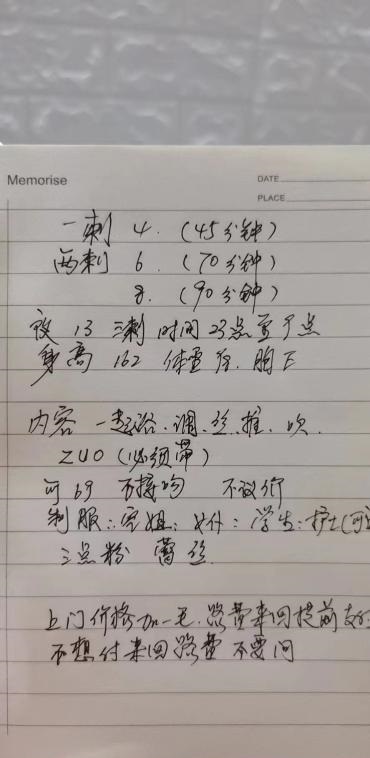 Memorise
DATE
PLACE
一刺 4. (45分钟)
两刺 6. (70分钟)
8. (90分钟)
夜 13 三刺 时间 23点至7点
身高 162 体重 胸E
内容 一起浴.调.丝.推.吹.
ZUO (必须带)
可69 不接吻 不议价
制服:空姐: 女仆: 学生:护士(可
三点粉 蕾丝
上门价格加一毛.路费来回提前支付
不想付来回路费 不要问